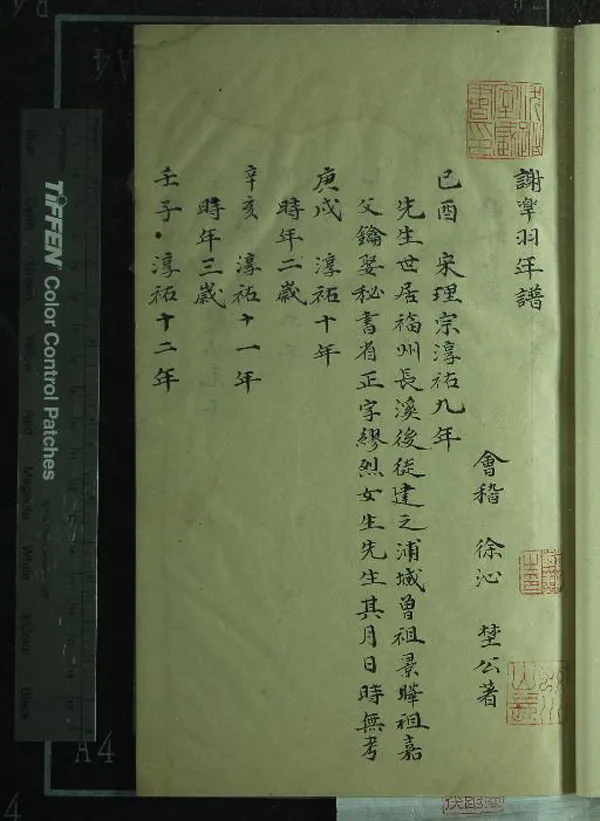 謝臯羽年譜
會稽 徐沁 埜公著
己酉 宋理宗淳祐九年
先生世居福州長溪後徙建之浦城曾祖景曄祖嘉
父鑰娶秘書省正字繆烈女生先生其月日時無考
庚戌 淳祐十年
時年二歲
辛亥 淳祐十一年
時年三歲
壬子 淳祐十二年
TIFFEN Color Control Patches
Blue
Cyan
Green
Yellow
Red
Magenta
White
3/Color
Black
A4